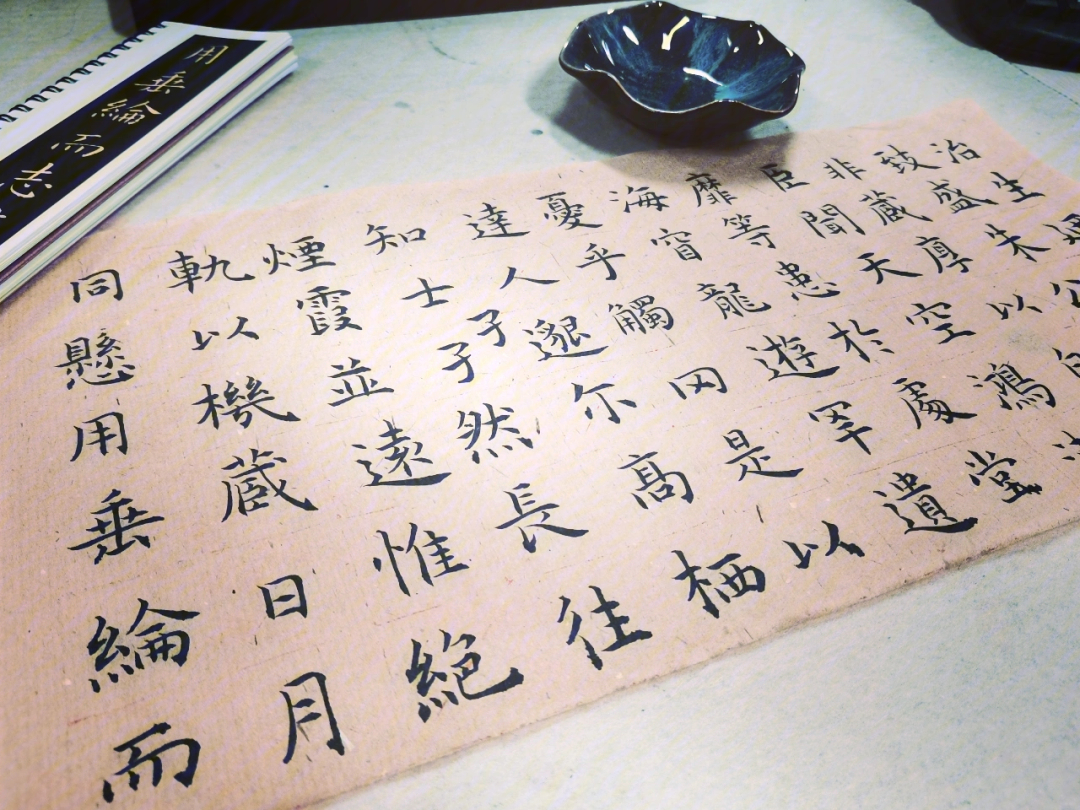 治生
致盛朱公
非蔵厚以
臣聞天空鴻
靡等患於處堂
海窅龍遊罕遺
憂乎觸网是以
達人邈尔高栖
知士子子然長往
煙霞並遠惟絕
軌以機蔵日月
同懸用垂綸而
用垂綸而志